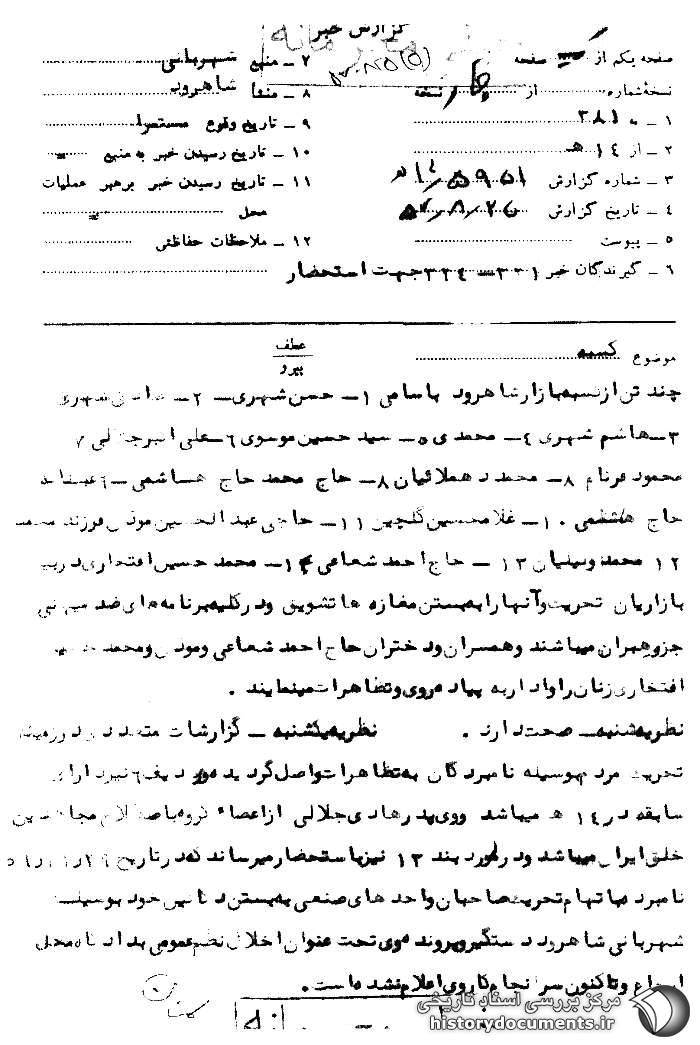 گزارش خبر
صفحه یکم از صفحه
نسخهٔ شماره از چهار نسخه
۱ـ به ۳۸۱
۲ـ از ۱۴ هـ
۳ـ شماره گزارش ۱۴/۵۹۵۱ هـ
۴ـ تاریخ گزارش
۵ـ پیوست
۶ـ گیرندگان خبر ۳۳۱ـ۳۳۴ جهت استحضار
۷ـ منبع شهربانی
۸ـ منشأ شاهرود
۹ـ تاریخ وقوع مستمراً
۱۰ـ تاریخ رسیدن خبر به منبع
۱۱ـ تاریخ رسیدن خبر برهبر عملیات
محل
۱۲ـ ملاحظات حفاظتی
موضوع کسبه
عطف
پیرو
چند تن از کسبه بازار شاهرود باسامی ۱ـ حسن شهری ـ ۲ـ شهری
۳ـ هاشم شهری ۴ـ محمدی ۵ـ سید حسین موسوی ۶ـ علی اکبر جلالی ۷
محمود فرنام ۸ـ محمد دهملائیان ۸ـ حاج محمد حاج هاشمی ـ
حاج هاشمی ۱۰ـ غلامحسین گلچین ۱۱ـ حاجی عبدالحسین موذنی فرزند محمد
۱۲ محمد ۱۳ ـ حاج احمد شعاعی ۱۴ـ محمد حسین افتخاری در بین
بازاریان تحریک و آنها را به بستن مغازه ها تشویق و در کلیه برنامه های ضد میهنی
جزو رهبران میباشند و همسران و دختران حاج احمد شعاعی و موذنی و محمد حسین
افتخاری زنان را وادار به پیاده روی و تظاهرات مینمایند .
نظریه شنبه ـ صحت دارد . نظریه یکشنبه ـ گزارشات متعددی در زمینه
تحریک مردم بوسیله نامبردگان به تظاهرات واصل گردیده و ردیف ۶ نیز دارای
سابقه در ۱۴ هـ میباشد و وی پدر هادی جلالی از اعضاء گروه باصطلاح مجاهدین
خلق ایران میباشد و در مورد بند ۱۳ نیز باستحضار میرساند که در تاریخ
نامبرده باتهام تحریک صاحبان واحدهای صنفی به بستن دکاکین خود بوسیله
شهربانی شاهرود دستگیر و پرونده وی تحت عنوان اخلال نظم عمومی بدادگاه محلی
ارجاع و تاکنون سرانجام کار وی اعلام نشده است .
مرکز بررسی اسناد تاریخی
historydocuments.ir